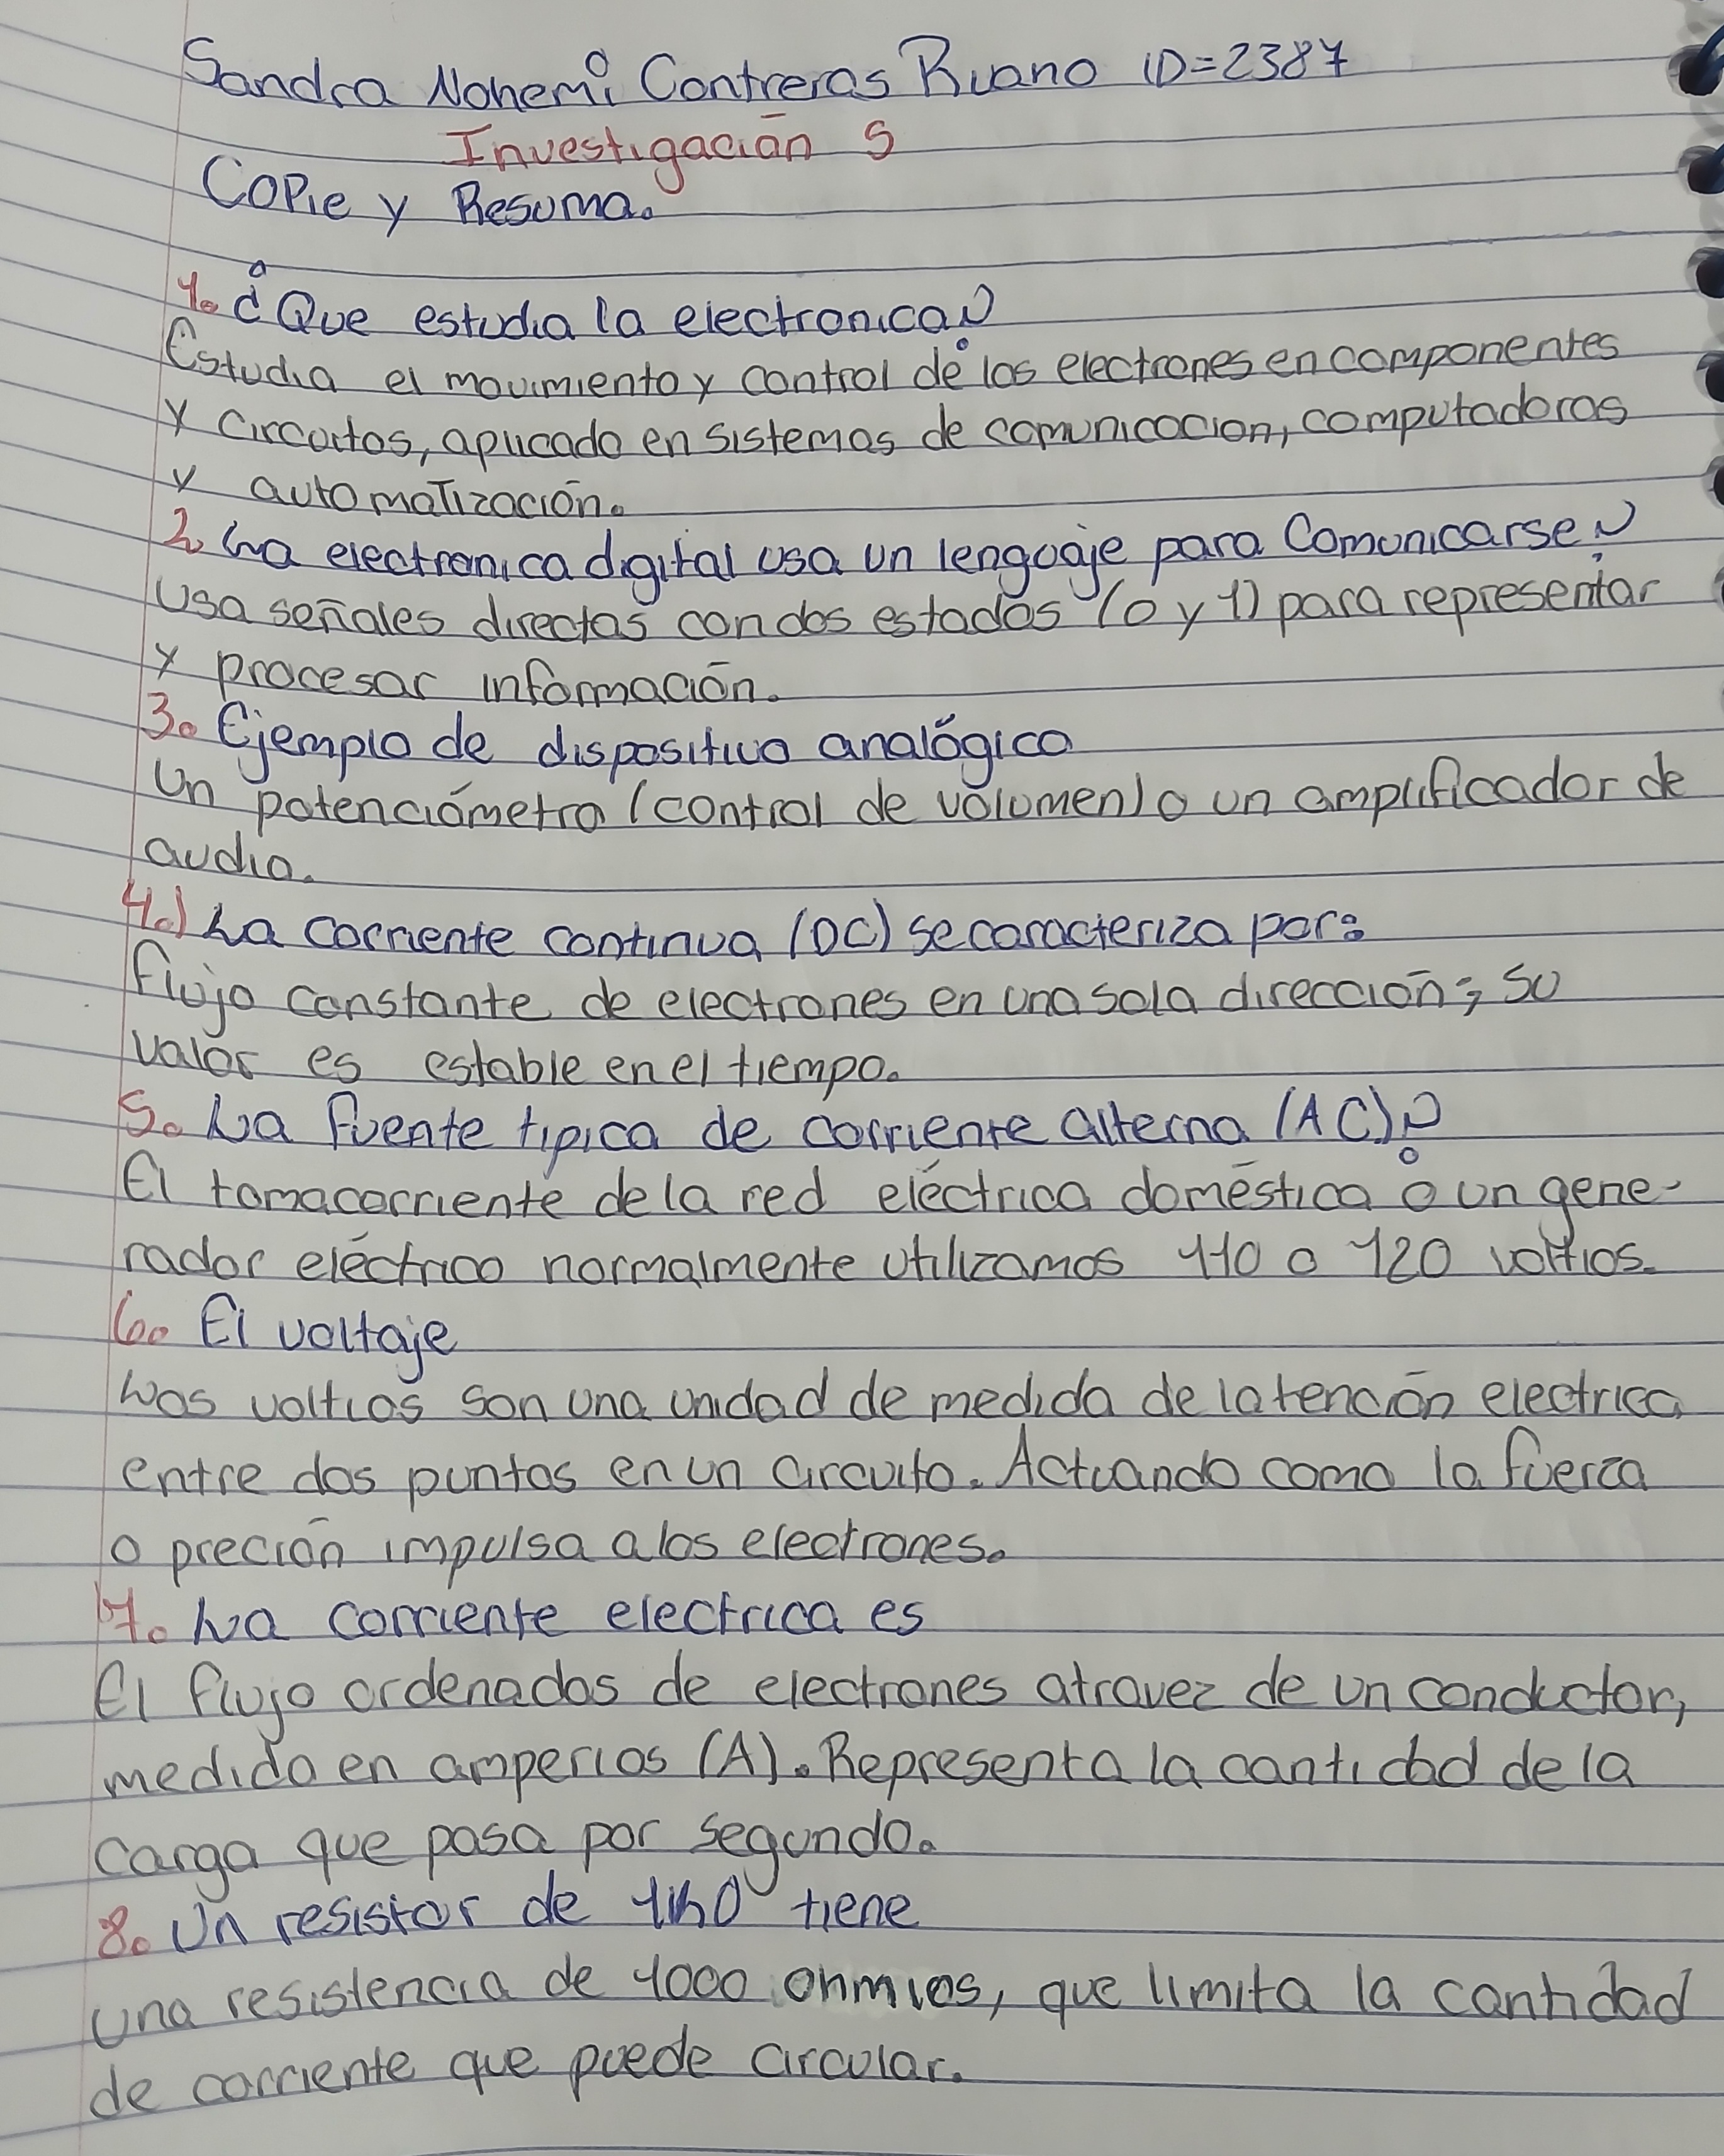 Sandra Nohemi Contreras Ruano ID=2387
Investigación 5
Copie y Resuma.
1. ¿Que estudia la electronica?
Estudia el movimiento y control de los electrones en componentes
y circuitos, aplicado en sistemas de comunicacion, computadoras
y automatización.
2. La electronica digital usa un lenguaje para Comunicarse?
Usa señales directas con dos estados (0 y 1) para representar
y procesar información.
3. Ejemplo de dispositivo analógico
Un potenciómetro (control de volumen) o un amplificador de
audio.
4.) La corriente continua (DC) se caracteriza por:
Flujo constante de electrones en una sola dirección; su
valor es estable en el tiempo.
5. La fuente tipica de corriente alterna (AC)?
El tomacorriente de la red eléctrica doméstica o un gene-
rador eléctrico normalmente utilizamos 110 o 120 voltios.
6. El voltaje
Los voltios son una unidad de medida de la tención electrica
entre dos puntos en un circuito. Actuando como la fuerza
o preción impulsa a los electrones.
7. La corriente electrica es
El flujo ordenados de electrones atravez de un conductor,
medido en amperios (A). Representa la cantidad de la
carga que pasa por segundo.
8. Un resistor de 1kΩ tiene
una resistencia de 1000 ohmios, que limita la cantidad
de corriente que puede circular.